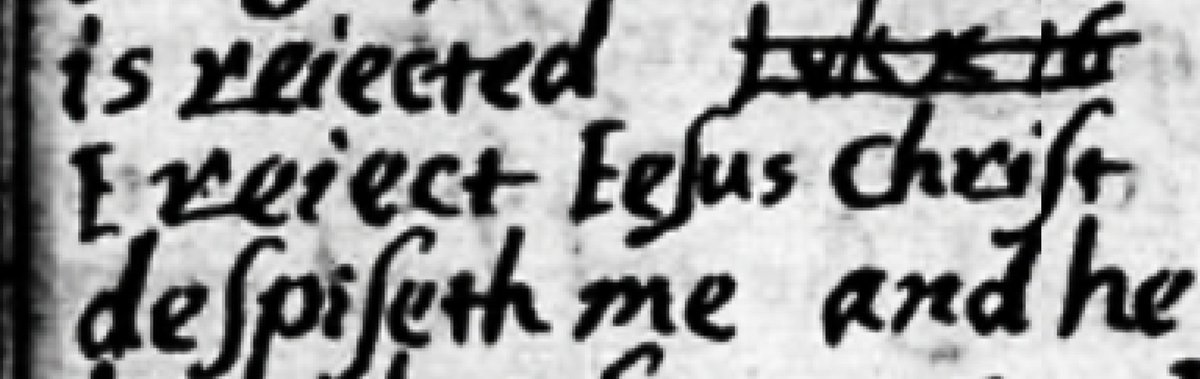 is reiected
I reiect Ieſus Chriſt
deſpiſeth me and he